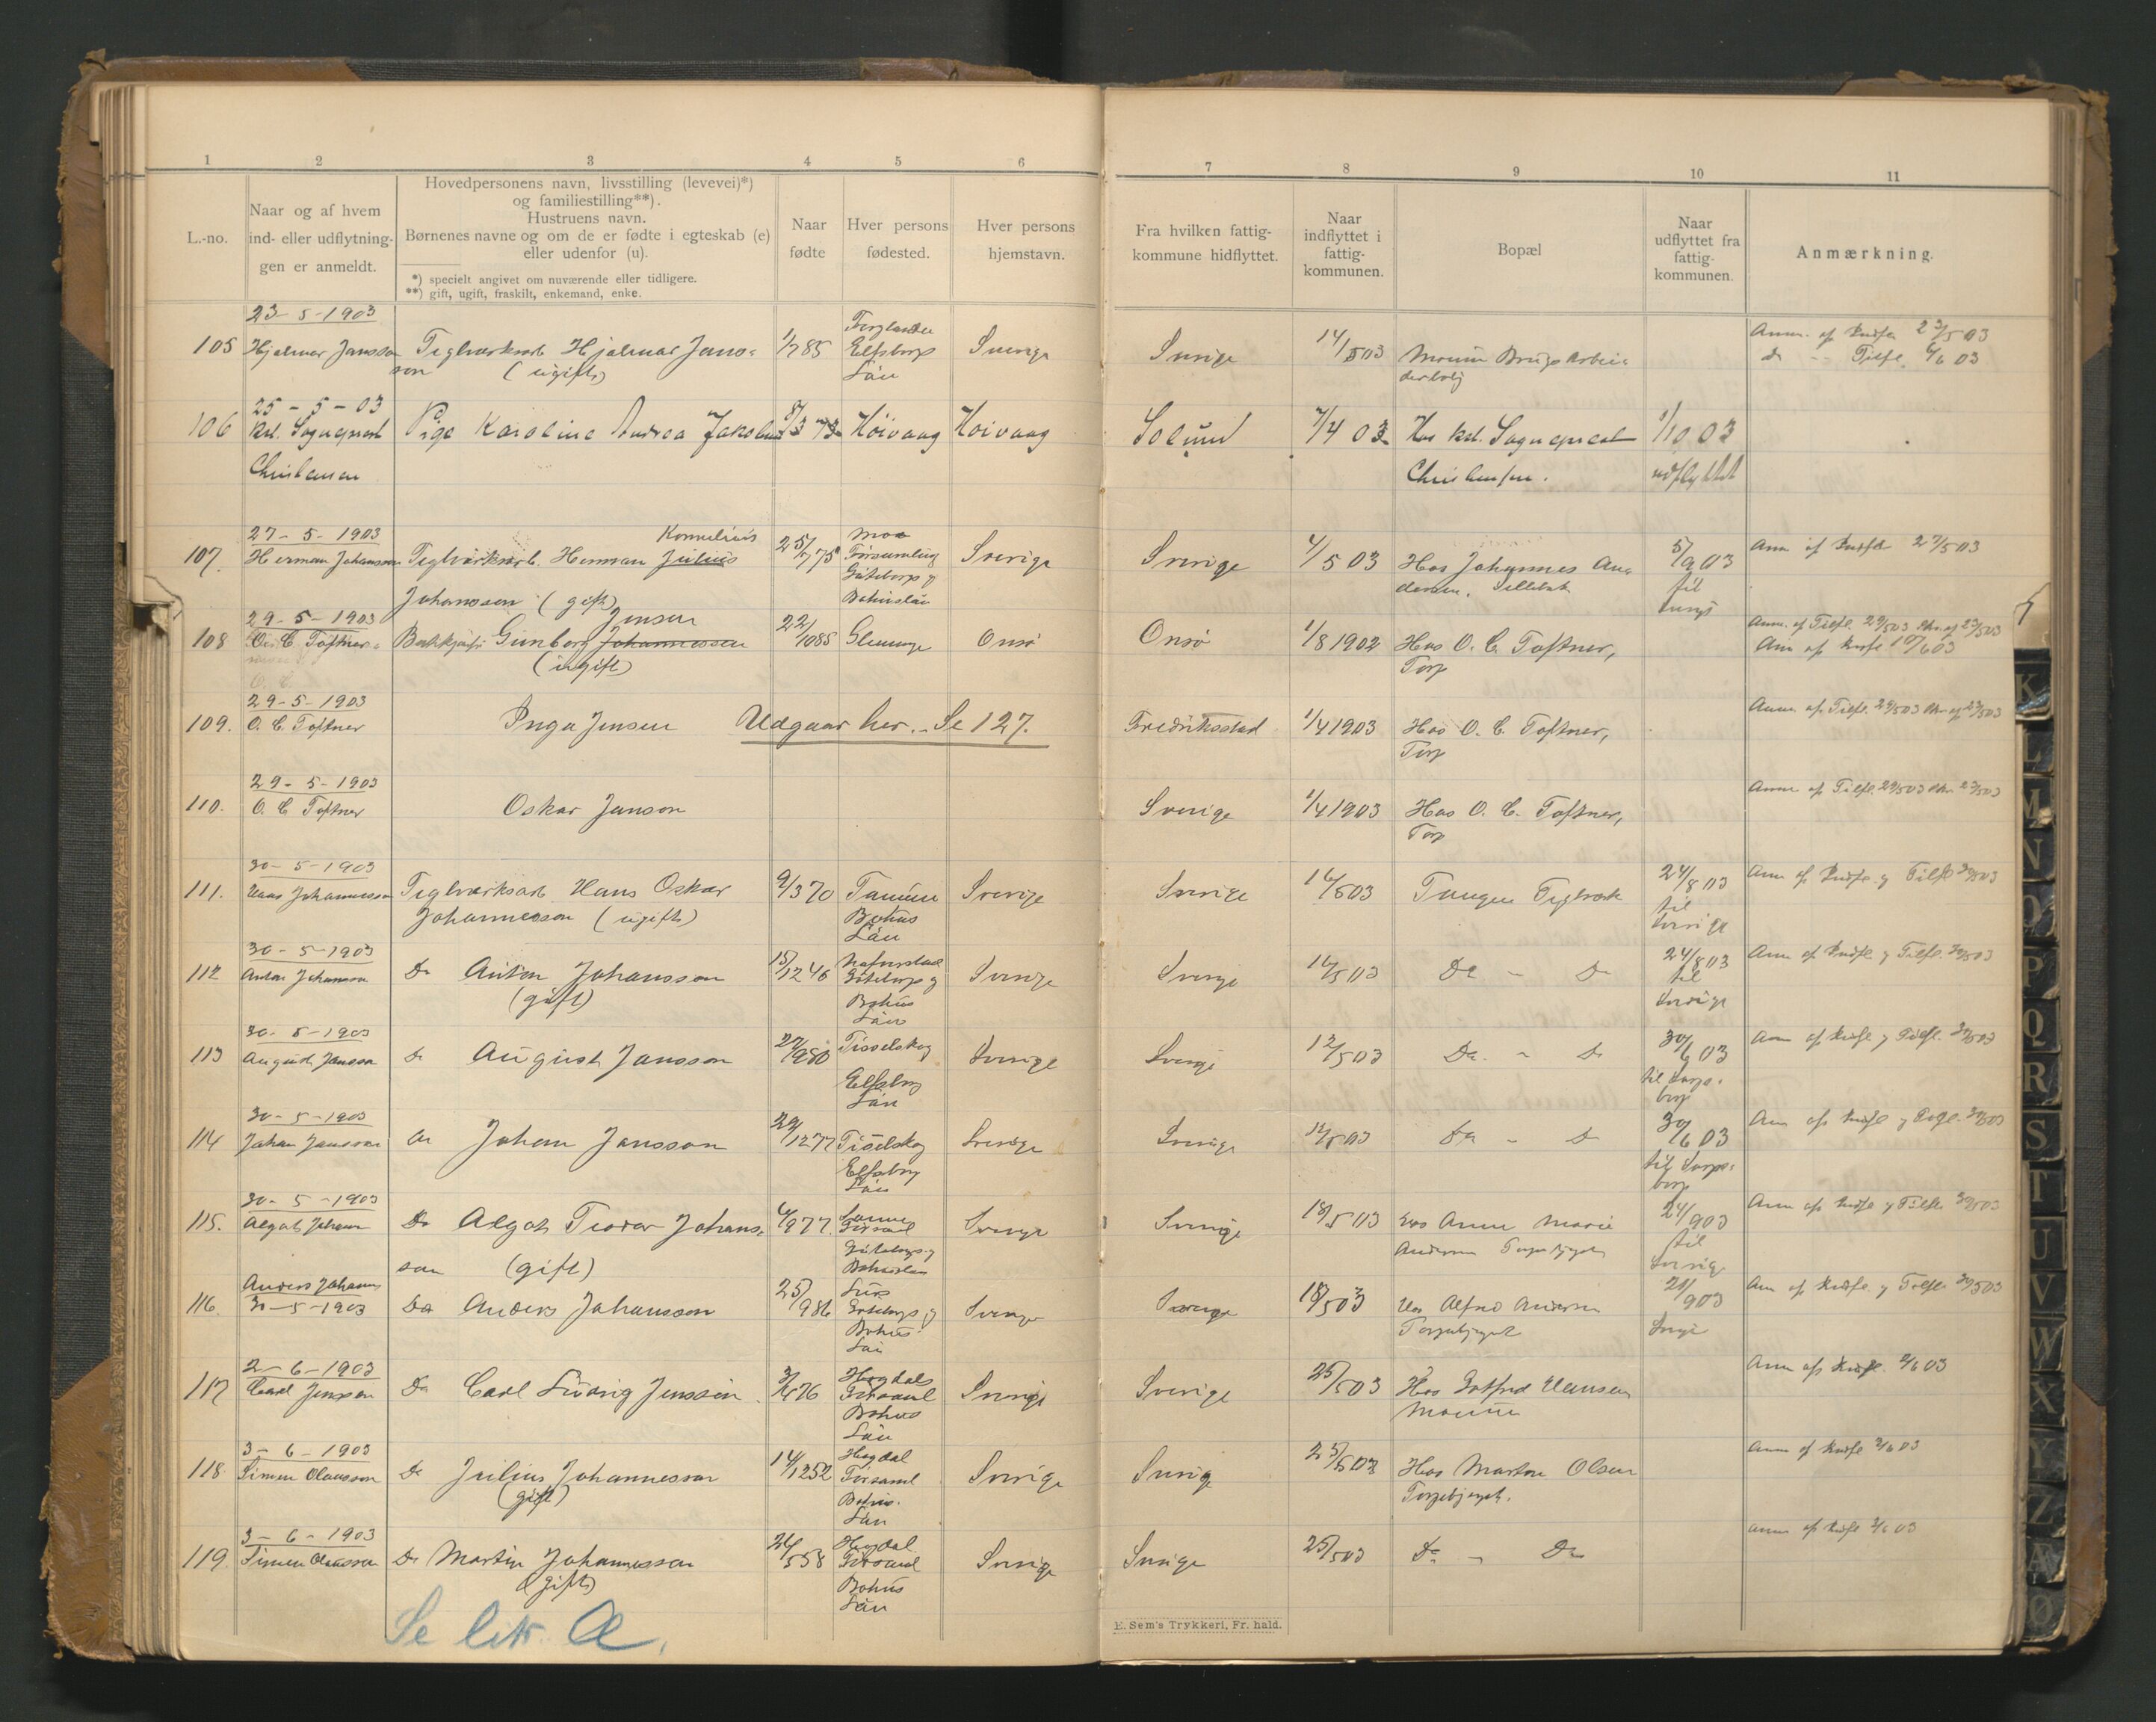 1 2 3 4 5 6 7 8 9 10 11
L.-no.
Naar og af hvem
ind- eller udflytnin-
gen er anmeldt.
Hovedpersonens navn, livsstilling (levevei)*)
og familiestilling**).
Hustruens navn.
Børnenes navne og om de er fødte i egteskab (e)
eller udenfor (u).
*) specielt angivet om nuværende eller tidligere.
**) gift, ugift, fraskilt, enkemand, enke.
Naar
fødte
Hver persons
fødested.
Hver persons
hjemstavn.
Fra hvilken fattig-
kommune hidflyttet.
Naar
indflyttet i
fattig-
kommunen.
Bopæl
Naar
udflyttet fra
fattig-
kommunen.
Anmærkning.
23-5-1903
105 Hjalmar Jansson Teglverksarb Hjalmar Jans-
son (ugift)
1/7 85
Elfsborgs
Län
Sverige Sverige 14/5 03 Moum Brugs Arbei-
derbolig
Anm. af Indfl 23/5 03
do - Tilfl. 6/6 03
25-5-03
106 Kst. Sogneprest Pige Karoline Andrea Jakobsen 8/3 73 Höivaag Höivaag Solum 7/4 03 Hos kst. Sogneprest 1/10 03
Christensen Christensen. udflyttet
27-5-1903 Kornelius
107. Herman Johansson Teglverksarb. Herman Julius
Johansson (gift)
25/7 75 Moe
Församling
Göteborgs og
Bohuslän
Sverige Sverige 4/5 03 Hos Johannes An-
dersen. Sillebæk
5/9 03
til
Sverige
Anm af Indfl 27/5 03
29-5-1903 Jensen
108 O. C. Toftner Gunborg Johannessen
(ugift)
22/10 85 Glemmge Onsø Onsø 1/8 1902 Hos O. C. Toftner,
Torp
Anm. af Tilfl. 29/5 03
Anm af Indfl 17/6 03
29-5-1903
109. O. C. Toftner Inga Jensen Udgaar her. - Se 127. Fredriksstad 1/4 1903 Hos O. C. Toftner,
Torp
Anm. af Tilfl. 29/5 03
29-5-1903
110. O. C Toftner Oskar Janson Sverige 1/4 1903 Hos O. C. Toftner,
Torp
Anm af Tilfl. 29/5 03
30-5-1903
111. Hans Johannesson Teglverksarb Hans Oskar
Johannesson (ugift)
9/3 70 Tanum
Bohus
Län
Sverige Sverige 16/5 03 Tangen Teglverk
24/8 03
til
Sverige
Anm af Indfl. og Tilfl 30/5 03
30-5-1903
112 Anton Johansson Do Anton Johansson
(gift)
15/12 46 Nafverstad
Göteborgs og
Bohus
Län
Sverige Sverige 16/5 03 Do - Do
24/8 03
til
Sverige
Anm af Indfl. og Tilfl. 30/5 03
30-5-1903
113 August Jansson Do August Jansson 27/9 80 Tisselskog
Elfsborg
Län
Sverige Sverige 12/5 03 Do - Do
30/6 03
til Sarps-
borg
Anm af Indfl og Tilfl. 30/5 03
30-5-1903
114 Johan Jansson Do Johan Jansson 29/12 77 Tisselskog
Elfsborg
Län
Sverige Sverige 12/5 03 Do - Do
30/6 03
til Sarps-
borg
Anm af Indfl og Tilfl. 30/5 03
30-5-1903
115. Algot Johansson Do Algot Teodor Johans-
son (gift)
6/9 77
Församl
Göteborgs og
Bohuslän
Sverige Sverige 18/5 03 Hos Anne Marie
Andersen
24/9 03
til
Sverige
Anm af Indfl og Tilfl. 30/5 03
Anders Johanns
116. 30-5-1903 Do Anders Johansson 25/9 86 Lurs
Göteborgs og
Bohus
Län
Sverige Sverige 18/5 03 Hos Alfred Andersen
Torpebjerget
24/9 03
Sverige
Anm af Indfl. og Tilfl 30/5 03
2-6-1903
117 Carl Jensson Do Carl Ludvig Jensson Hogdals
Församl
Bohus
Län
Sverige Sverige 25/5 03 Hos Gotfred Hansen
Moum
Anm af Indfl. 2/6 03
3-6-1903
118. Simen Olausson Do Julius Johannesson
(gift)
14/12 52 Hogdal
Församl
Bohus.
Län
Sverige Sverige 25/5 03 Hos Martin Olsen
Torpebjerget.
Anm af Indfl 3/6 03
3-6-1903
119. Simen Olausson Do Martin Johannesson
(gift)
26/5 58 Hogdal
Församl
Bohus
Län
Sverige Sverige 25/5 03 Do - Do
Anm af Indfl 3/6 03
Se litr. A.
E. Sem's Trykkeri, Fr. hald.
K
L
M
N
O
P
Q
R
S
T
U
V
W
X
Y
Z
Æ
Ø